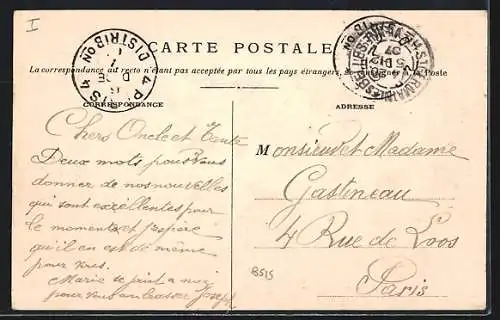 I
CARTE POSTALE
La correspondance au recto n'étant pas acceptée par tous les pays étrangers, se renseigner à la Poste
CORRESPONDANCE
ADRESSE
PARIS
DISTRIBON
Chers Oncle et Tante
Deux mots pour vous
donner de nos nouvelles
qui sont excellentes pour
le moment et j'espère
qu'il en est de même
pour vous.
Marie se joint a moi
pour vous embrasser Joseph
Monsieur et Madame
Gastineau
4 Rue de Loos
Paris
B515